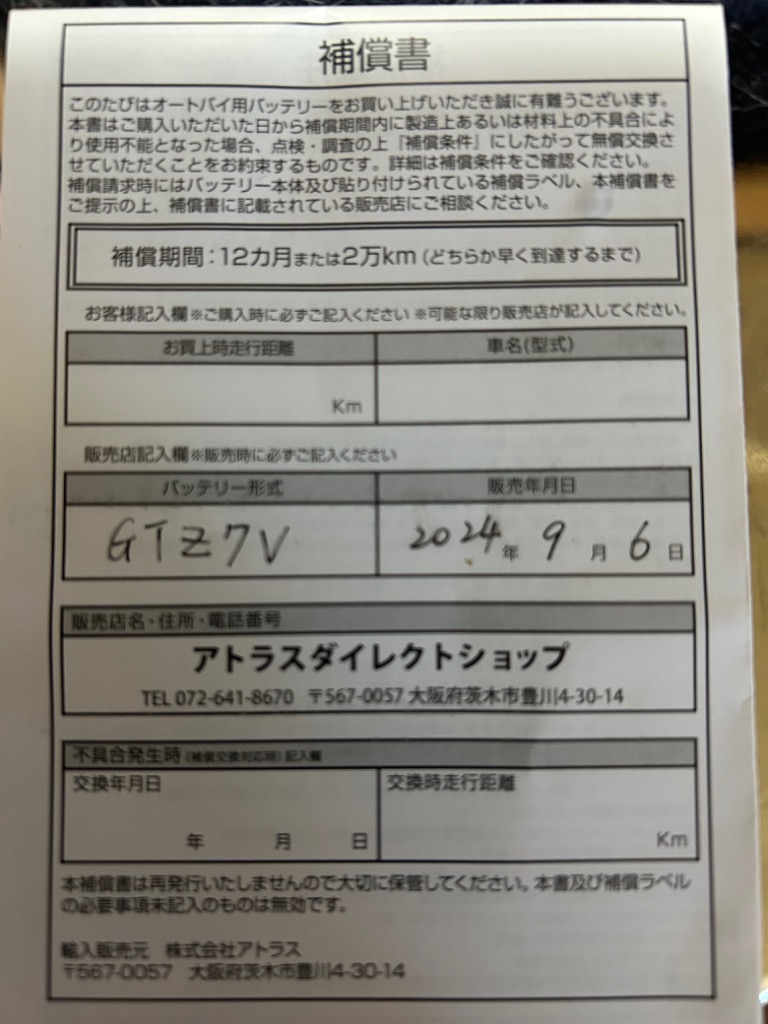 補償書
このたびはオートバイ用バッテリーをお買い上げいただき誠に有難うございます。
本書はご購入いただいた日から補償期間内に製造上あるいは材料上の不具合によ
り使用不能となった場合、点検・調査の上『補償条件』にしたがって無償交換さ
せていただくことをお約束するものです。詳細は補償条件をご確認ください。
補償請求時にはバッテリー本体及び貼り付けられている補償ラベル、本補償書を
ご提示の上、補償書に記載されている販売店にご相談ください。
補償期間：12カ月または2万km（どちらか早く到達するまで）
お客様記入欄※ご購入時に必ずご記入ください ※可能な限り販売店が記入してください。
お買上時走行距離 車名(型式)
Km
販売店記入欄※販売時に必ずご記入ください
バッテリー形式 販売年月日
GTZ7V 2024年 9月 6日
販売店名・住所・電話番号
アトラスダイレクトショップ
TEL 072-641-8670 〒567-0057 大阪府茨木市豊川4-30-14
不具合発生時（補償交換対応時）記入欄
交換年月日 交換時走行距離
年 月 日 Km
本補償書は再発行いたしませんので大切に保管してください。本書及び補償ラベル
の必要事項未記入のものは無効です。
輸入販売元 株式会社アトラス
〒567-0057 大阪府茨木市豊川4-30-14